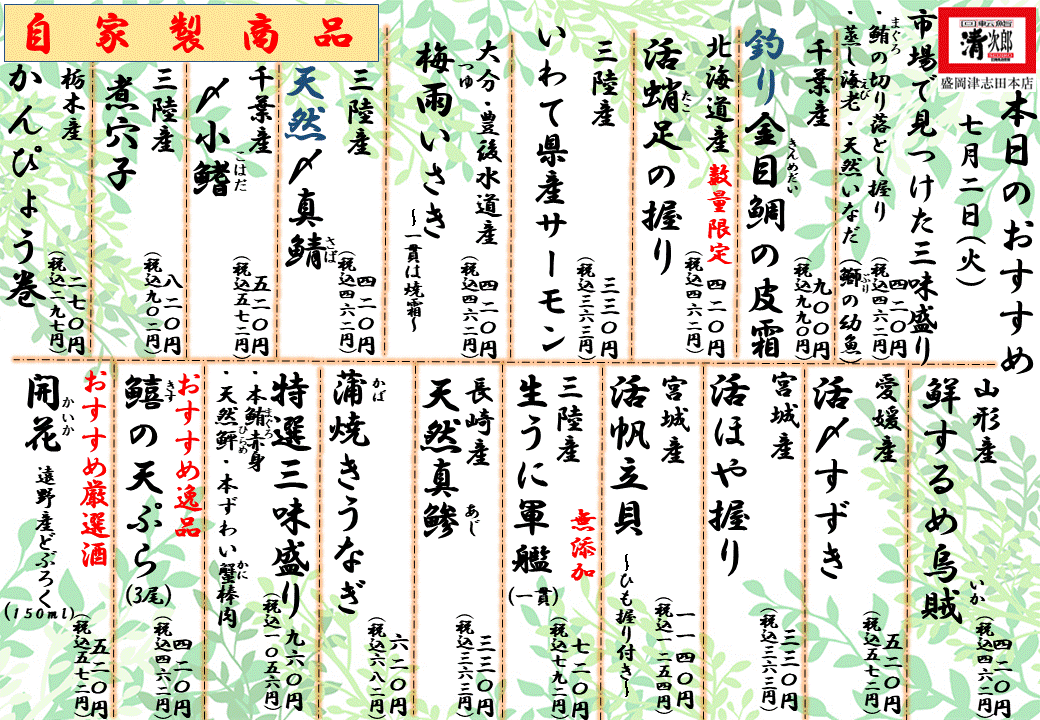 回転鮨
清次郎
盛岡津志田本店
本日のおすすめ
七月二日(火)
市場で見つけた三味盛り
・鮪の切り落とし握り
まぐろ
・蒸し海老・天然いなだ(鰤の幼魚)
えび
ぶり
四二〇円
(税込四六二円)
千葉産
釣り金目鯛の皮霜
きんめだい
九〇〇円
(税込九九〇円)
北海道産
数量限定
活蛸足の握り
たこ
四二〇円
(税込四六二円)
三陸産
いわて県産サーモン
三三〇円
(税込三六三円)
大分・豊後水道産
梅雨いさき
つゆ
~一貫は焼霜~
四二〇円
(税込四六二円)
自家製商品
三陸産
天然〆真鯖
さば
四二〇円
(税込四六二円)
千葉産
〆小鰭
こはだ
五二〇円
(税込五七二円)
三陸産
煮穴子
八二〇円
(税込九〇二円)
栃木産
かんぴょう巻
二七〇円
(税込二九七円)
山形産
鮮するめ烏賊
いか
四二〇円
(税込四六二円)
愛媛産
活〆すずき
五二〇円
(税込五七二円)
宮城産
活ほや握り
三三〇円
(税込三六三円)
宮城産
活帆立貝
~ひも握り付き~
一一四〇円
(税込一二五四円)
三陸産
無添加
生うに軍艦
(一貫)
七二〇円
(税込七九二円)
長崎産
天然真鯵
あじ
三三〇円
(税込三六三円)
蒲焼きうなぎ
かば
六二〇円
(税込六八二円)
特選三味盛り
・本鮪赤身
まぐろ
・天然鮃・本ずわい蟹棒肉
ひらめ
かに
九六〇円
(税込一〇五六円)
おすすめ逸品
鱚の天ぷら
きす
(3尾)
四二〇円
(税込四六二円)
おすすめ厳選酒
開花
かいか
遠野産どぶろく
(150ml)
五二〇円
(税込五七二円)